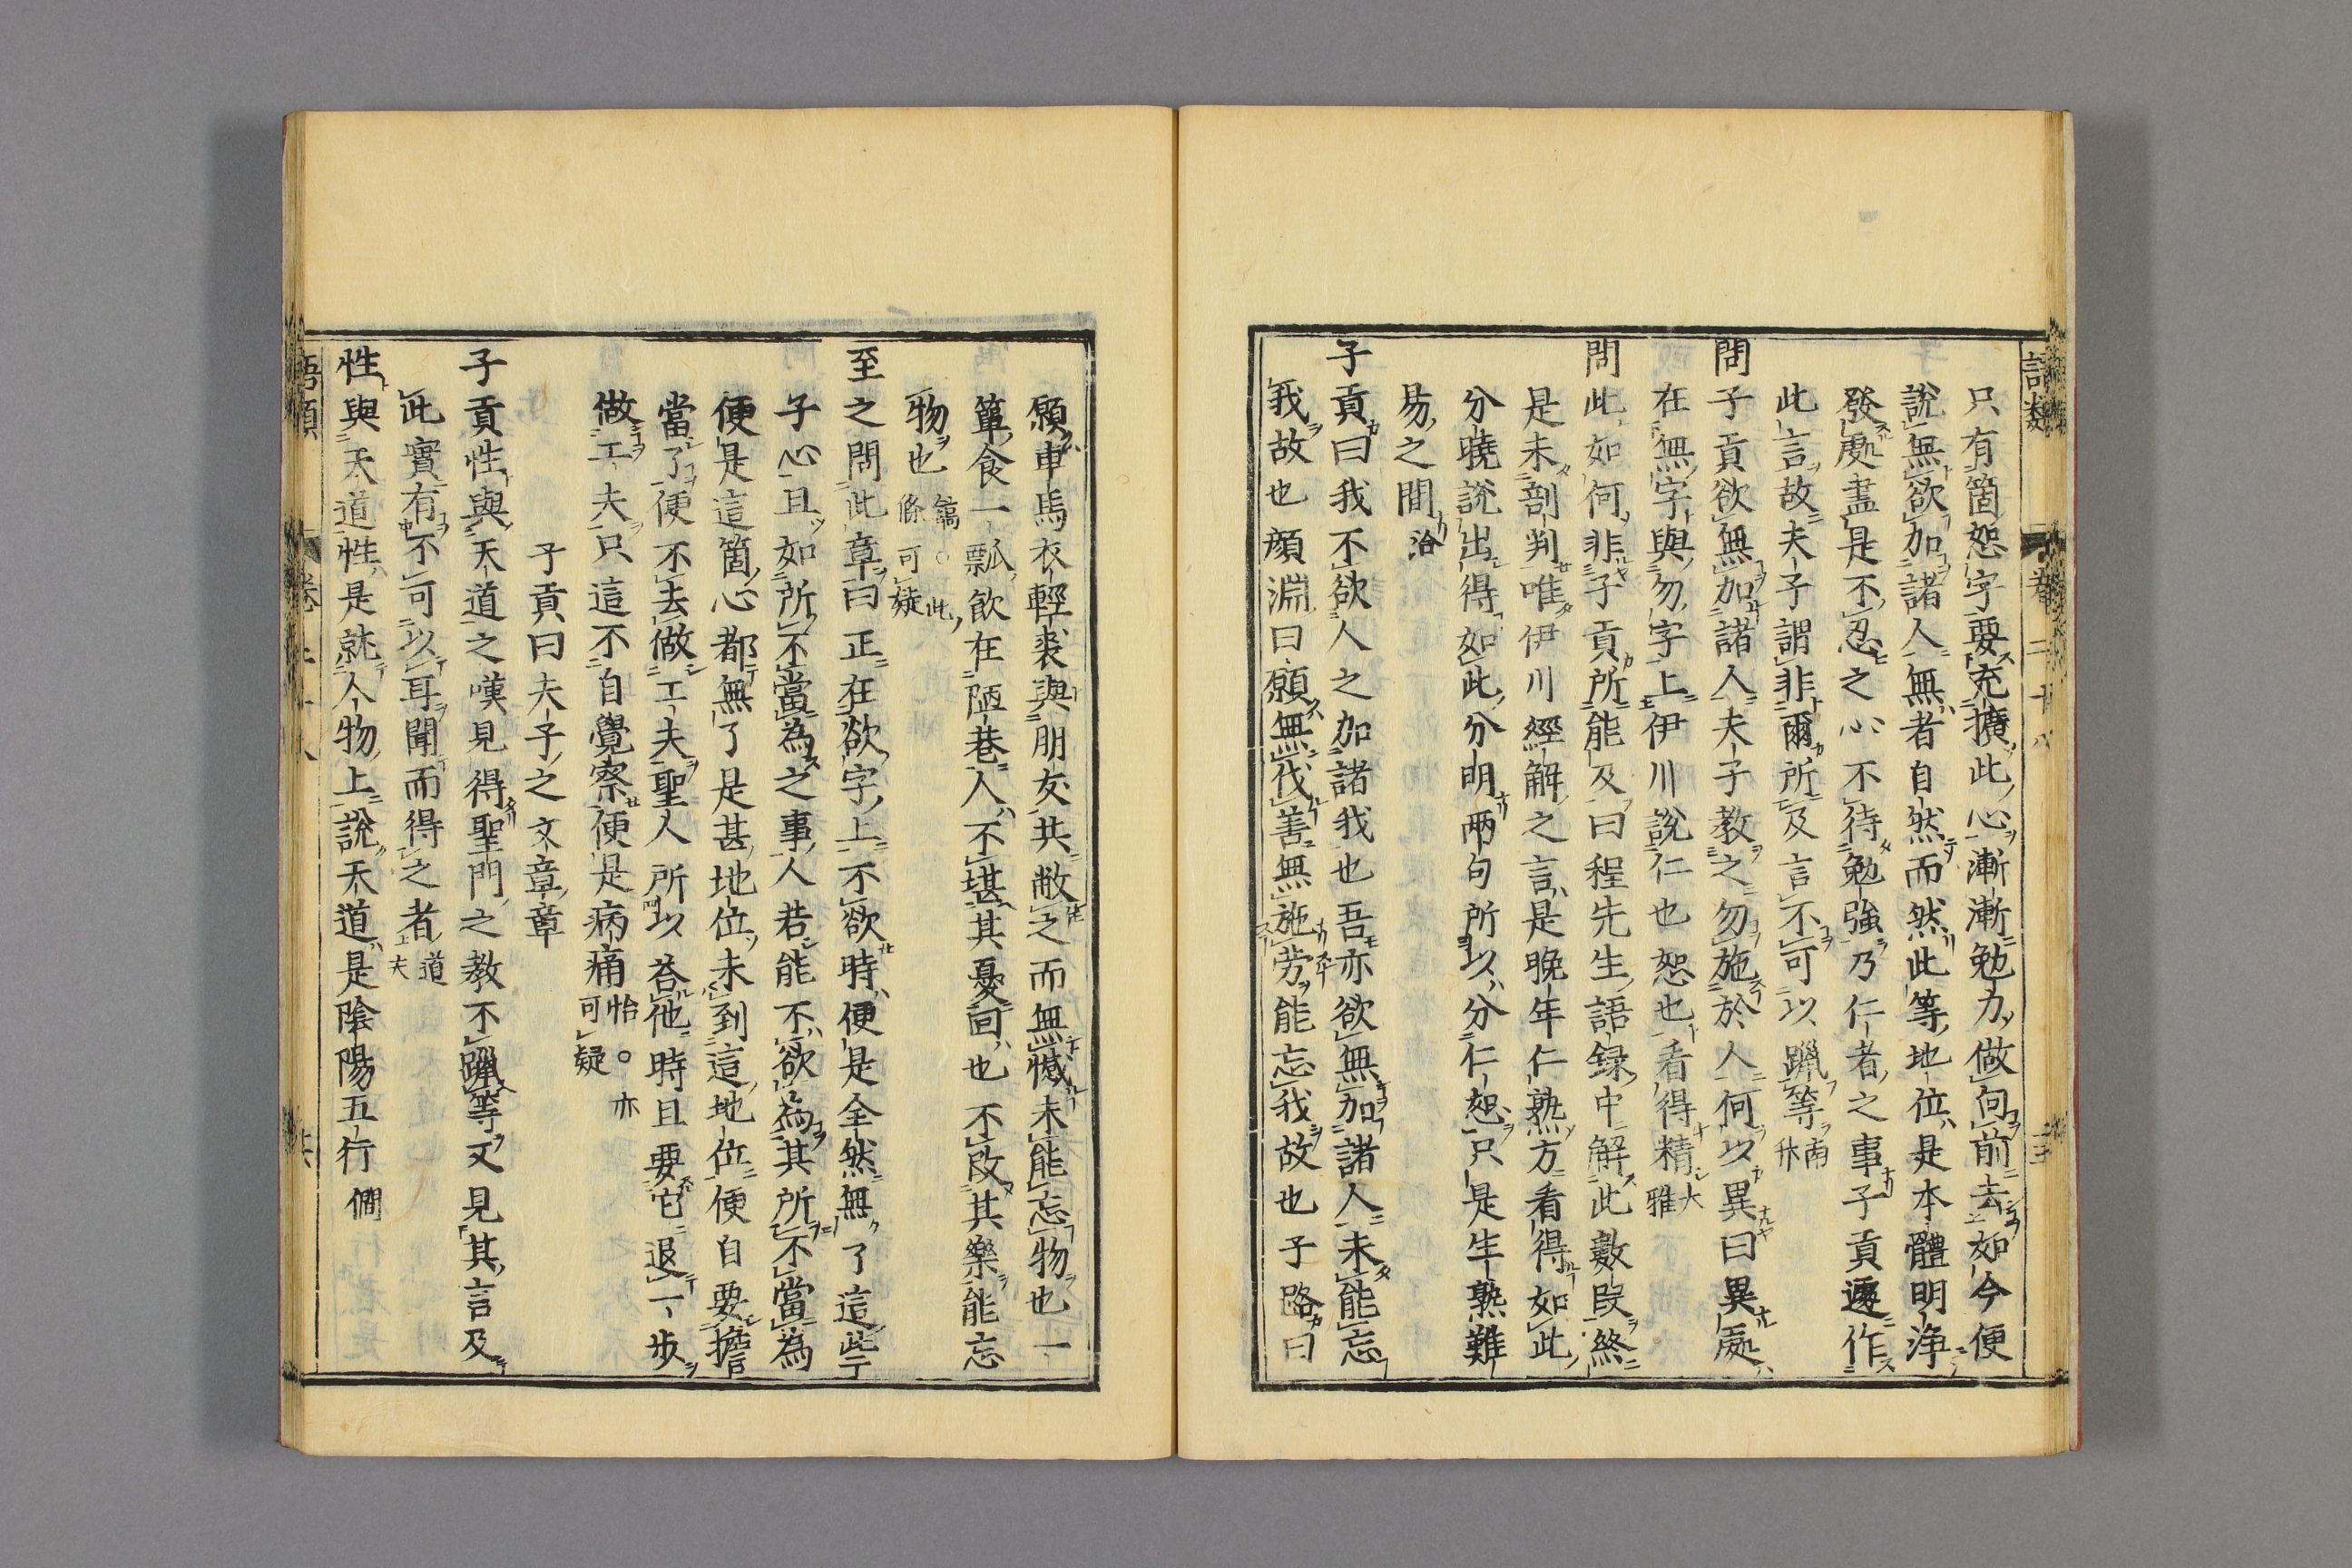 只有箇恕字要充擴此心漸漸勉力做向前去如今便
說無欲加諸人無者自然而然此等地位是本體明浄
發處盡是不忍之心不待勉強乃仁者之事子貢遽作
此言故夫子謂非爾所及言不可以躐等南升
問子貢欲無加諸人夫子教之勿施於人何以異曰異處
在無字與勿字上伊川說仁也恕也看得精大雅
問此如何非子貢所能及曰程先生語録中解此數段終
是未剖判唯伊川經解之言是晚年仁熟方看得如此
分曉說出得如此分明兩句所以分仁恕只是生熟難
易之間洽
子貢曰我不欲人之加諸我也吾亦欲無加諸人未能忘
我故也顔淵曰願無伐善無施労能忘我故也子路曰
願車馬衣輕裘與朋友共敝之而無憾未能忘物也一
簞食一瓢飲在陋巷人不堪其憂回也不改其樂能忘
物也鎬。此條可疑
至之問此章曰正在欲字上不欲時便是全然無了這些
子心且如所不當為之事人若能不欲為其所不當為
便是這箇心都無了是甚地位未到這地位便自要擔
當了便不去做工夫聖人所以荅他時且要它退一歩
做工夫只這不自覺察便是病痛怡。亦可疑
子貢曰夫子之文章章
子貢性與天道之嘆見得聖門之教不躐等又見其言及
此實有不可以耳聞而得之者道夫
性與天道性是就人物上說天道是陰陽五行僩
語類
卷二十八